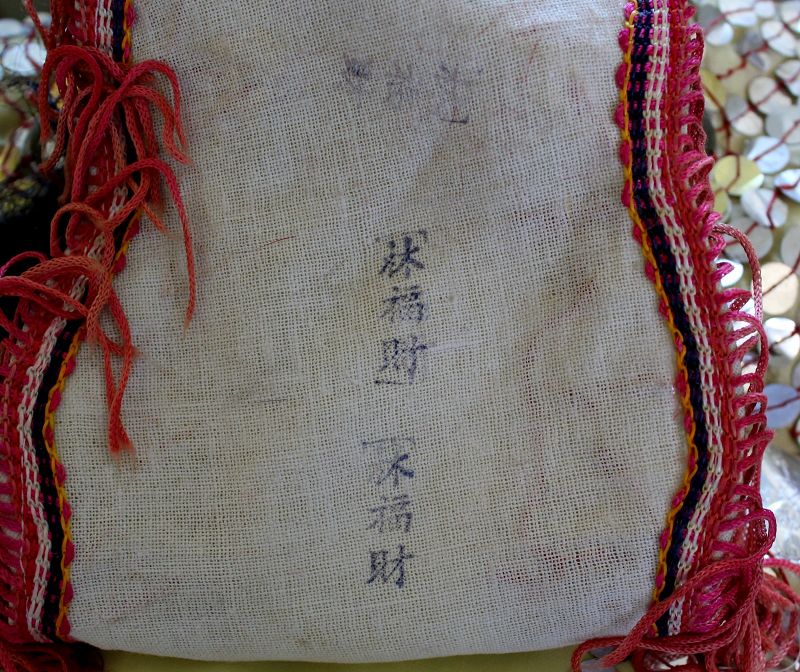 林福財
林福財